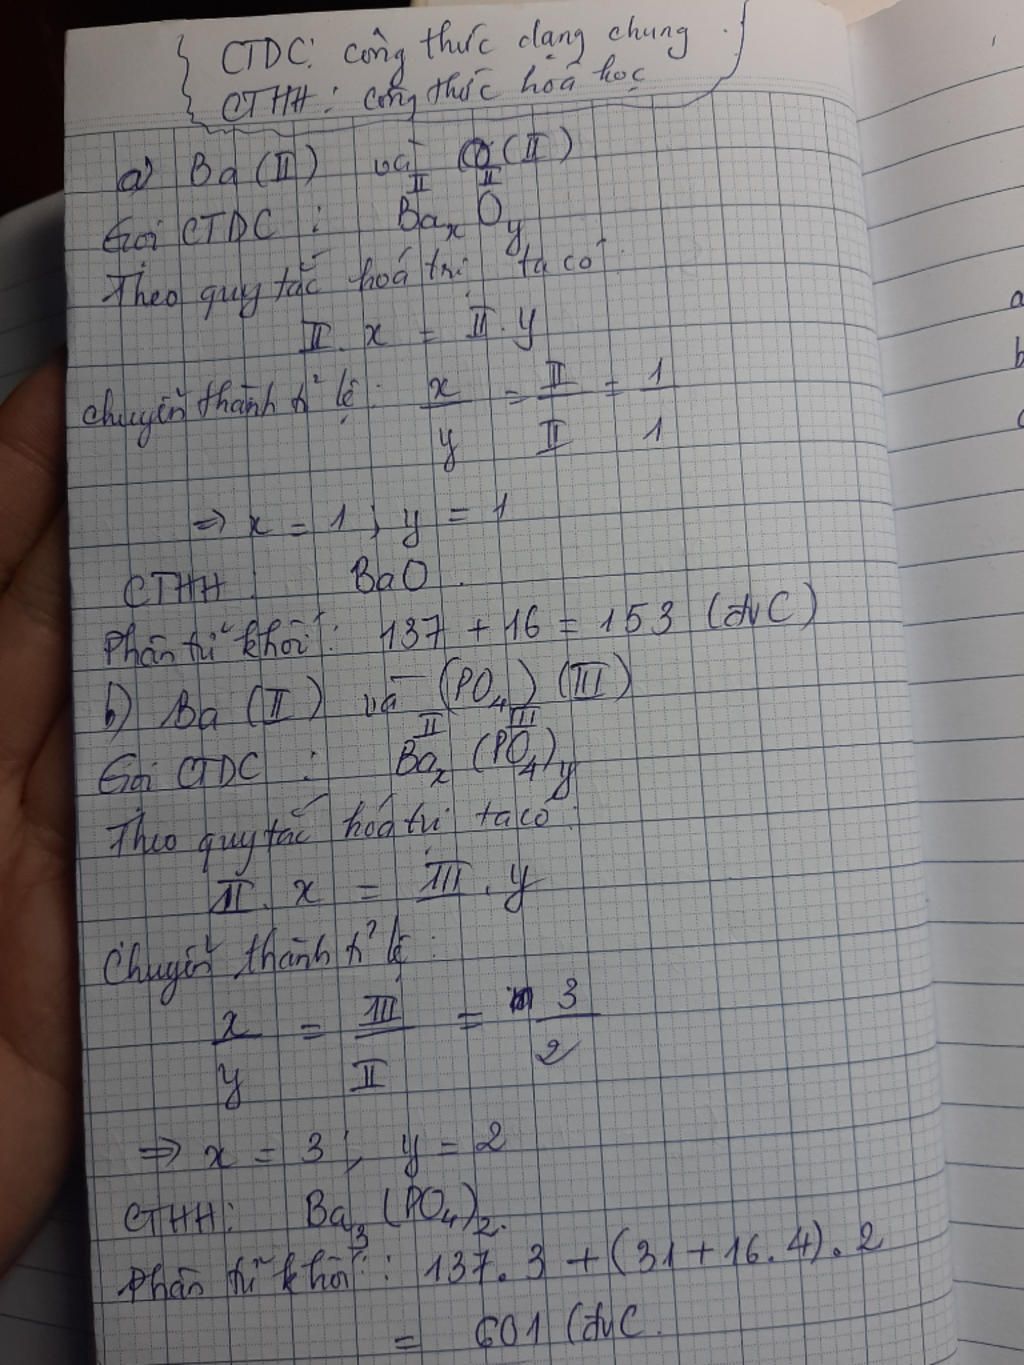 CTDC: công thức dạng chung.
CTHH: công thức hoá học
a) Ba (II) và O (II)
II II
Gọi CTDC : BaxOy
Theo quy tắc hoá trị ta có:
II. x = II. y
Chuyển thành tỉ lệ: x/y = II/II = 1/1
=> x = 1; y = 1
CTHH: BaO.
Phân tử khối: 137 + 16 = 153 (đvC)
b) Ba (II) và (PO4) (III)
II III
Gọi CTDC : Bax (PO4)y
Theo quy tắc hoá trị ta có:
II. x = III. y
Chuyển thành tỉ lệ:
x/y = III/II = 3/2
=> x = 3; y = 2
CTHH: Ba3 (PO4)2.
Phân tử khối: 137.3 + (31+16.4).2
= 601 (đvC.
a
b